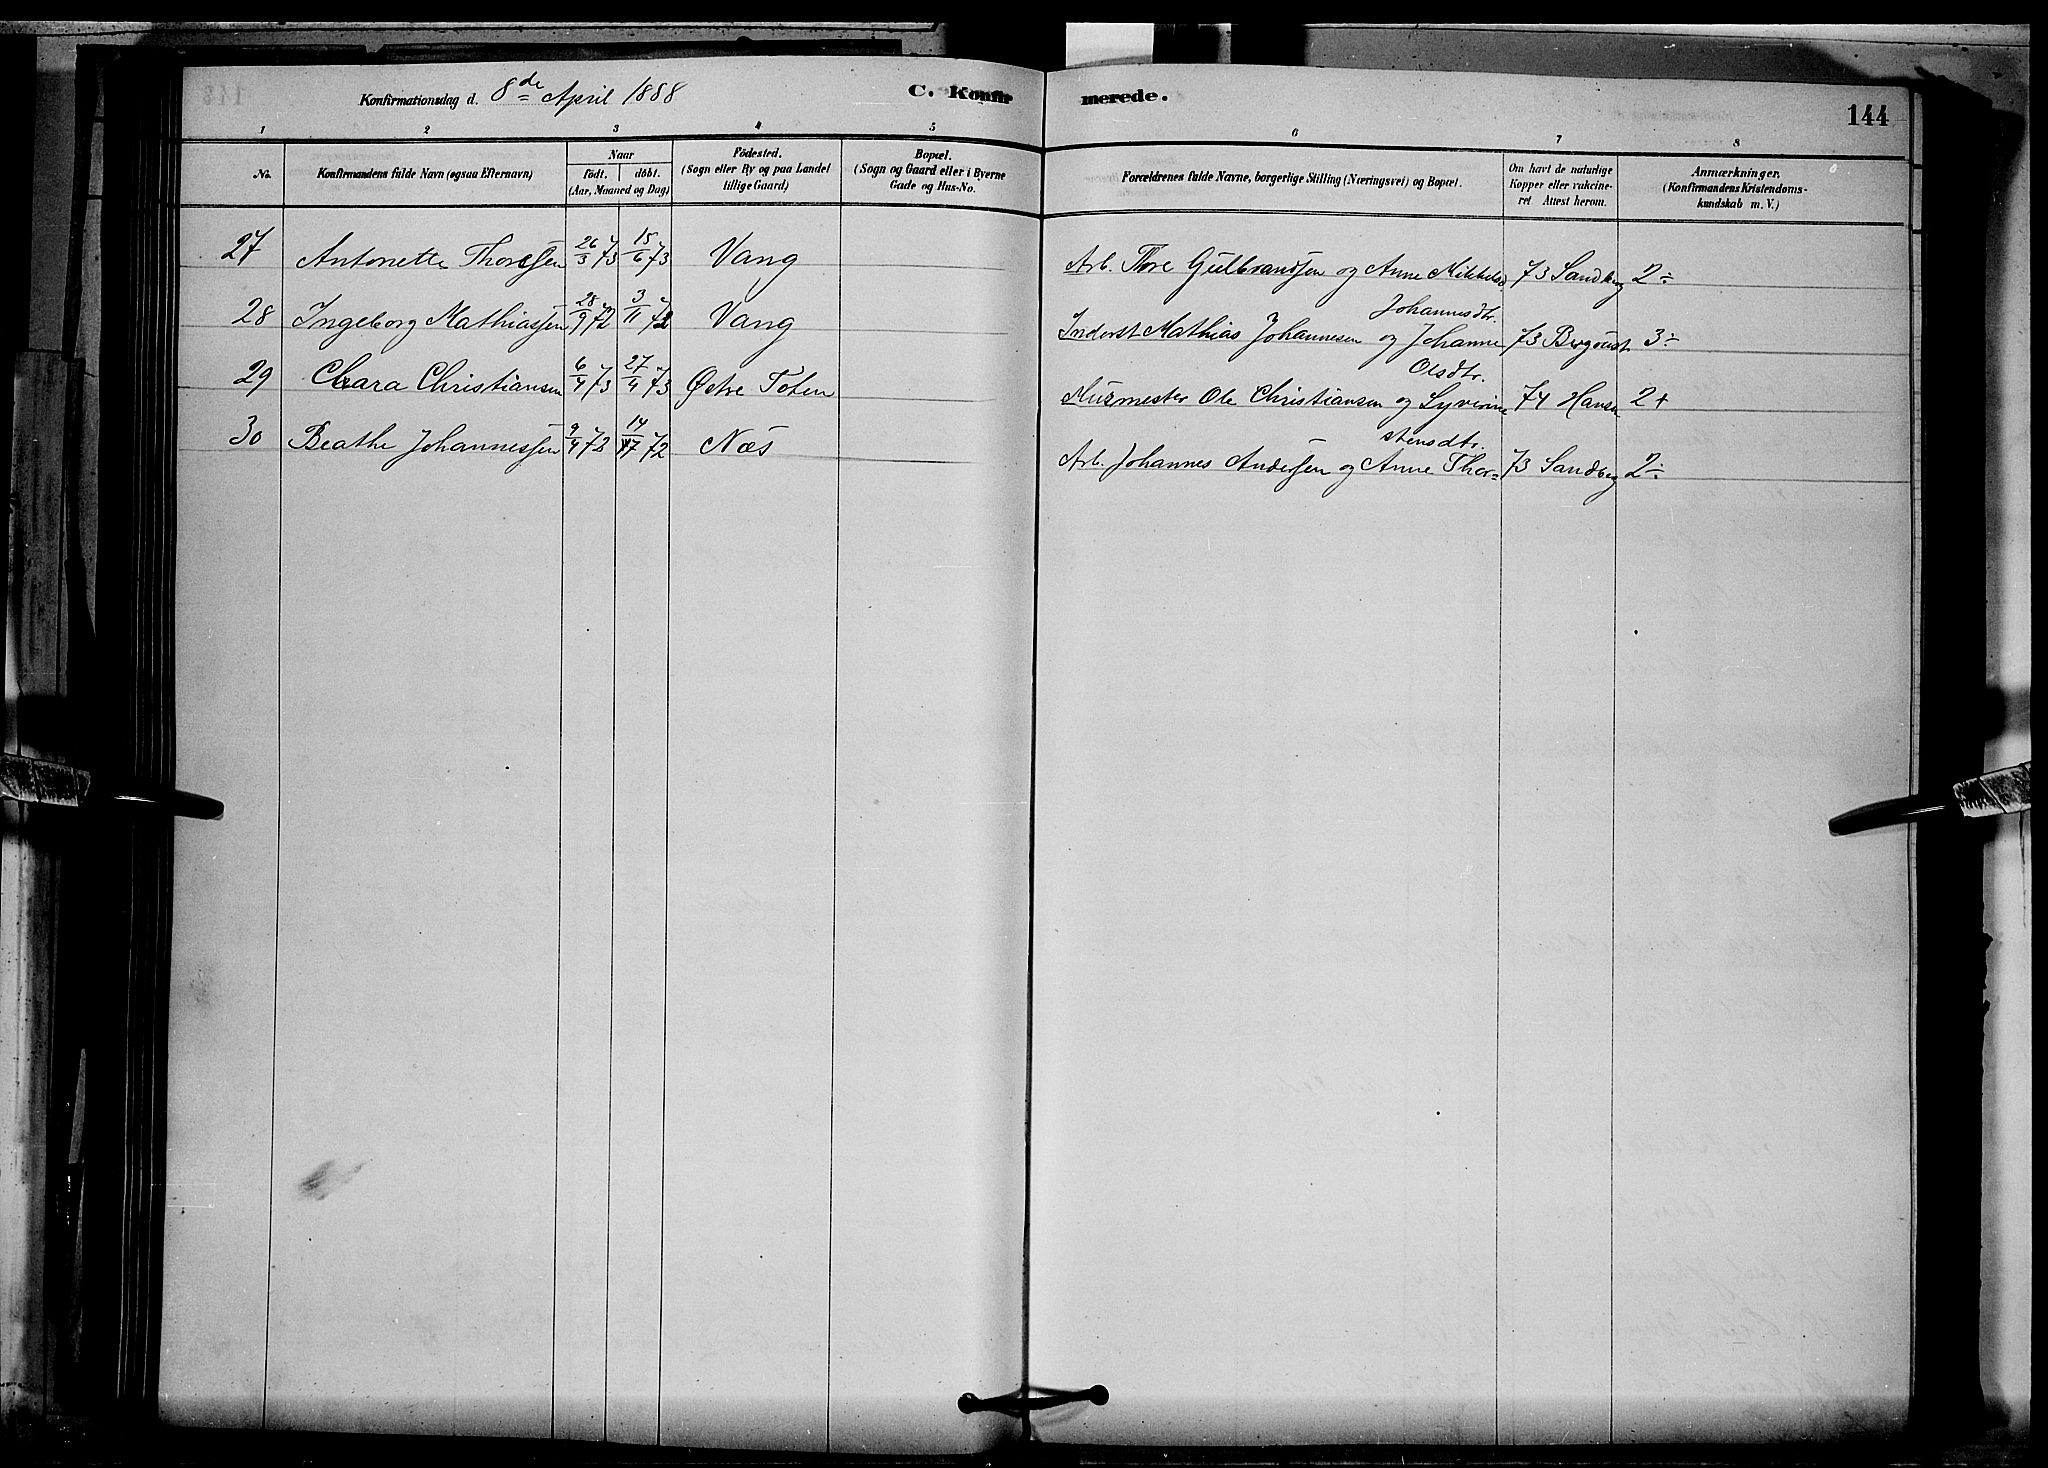 Konfirmationsdag d. 8de April 1888 C. Konfirmerede. 144
1 2 3 4 5 6 7 8
No. Konfirmandens fulde Navn (ogsaa Efternavn) Naar Födt. döbt. (Aar, Maaned og Dag) Födested. (Sogn eller By og paa Landet tillige Gaard) Bopæl. (Sogn og Gaard eller i Byerne Gade og Hus-No. Forældrenes fulde Navne, borgerlige Stilling (Næringsvei) og Bopæl. Om havt de naturlige Kopper eller vakcineret Attest herom. Anmærkninger. (Konfirmandens Kristendomskundskab m. V.)
27 Antonette Thoresen 26/3 73 15/6 73 Vang Arb. Thore Gulbrandsen og Anne Mikkelsd. 73 Sandberg 2÷
28 Ingeborg Mathiassen 28/9 72 3/11 72 Vang Inderst Mathias Johannesen og Johanne Johannesdtr. 73 3÷
29 Clara Christiansen 6/4 73 27/4 73 Østre Toten Murmester Ole Christiansen og Syverine Olsdtr. 74 Hansen 2+
30 Beathe Johannessen 9/4 72 14/7 72 Næs Arb. Johannes Andersen og Anne Thor=stensdtr. 73 Sandberg 2÷